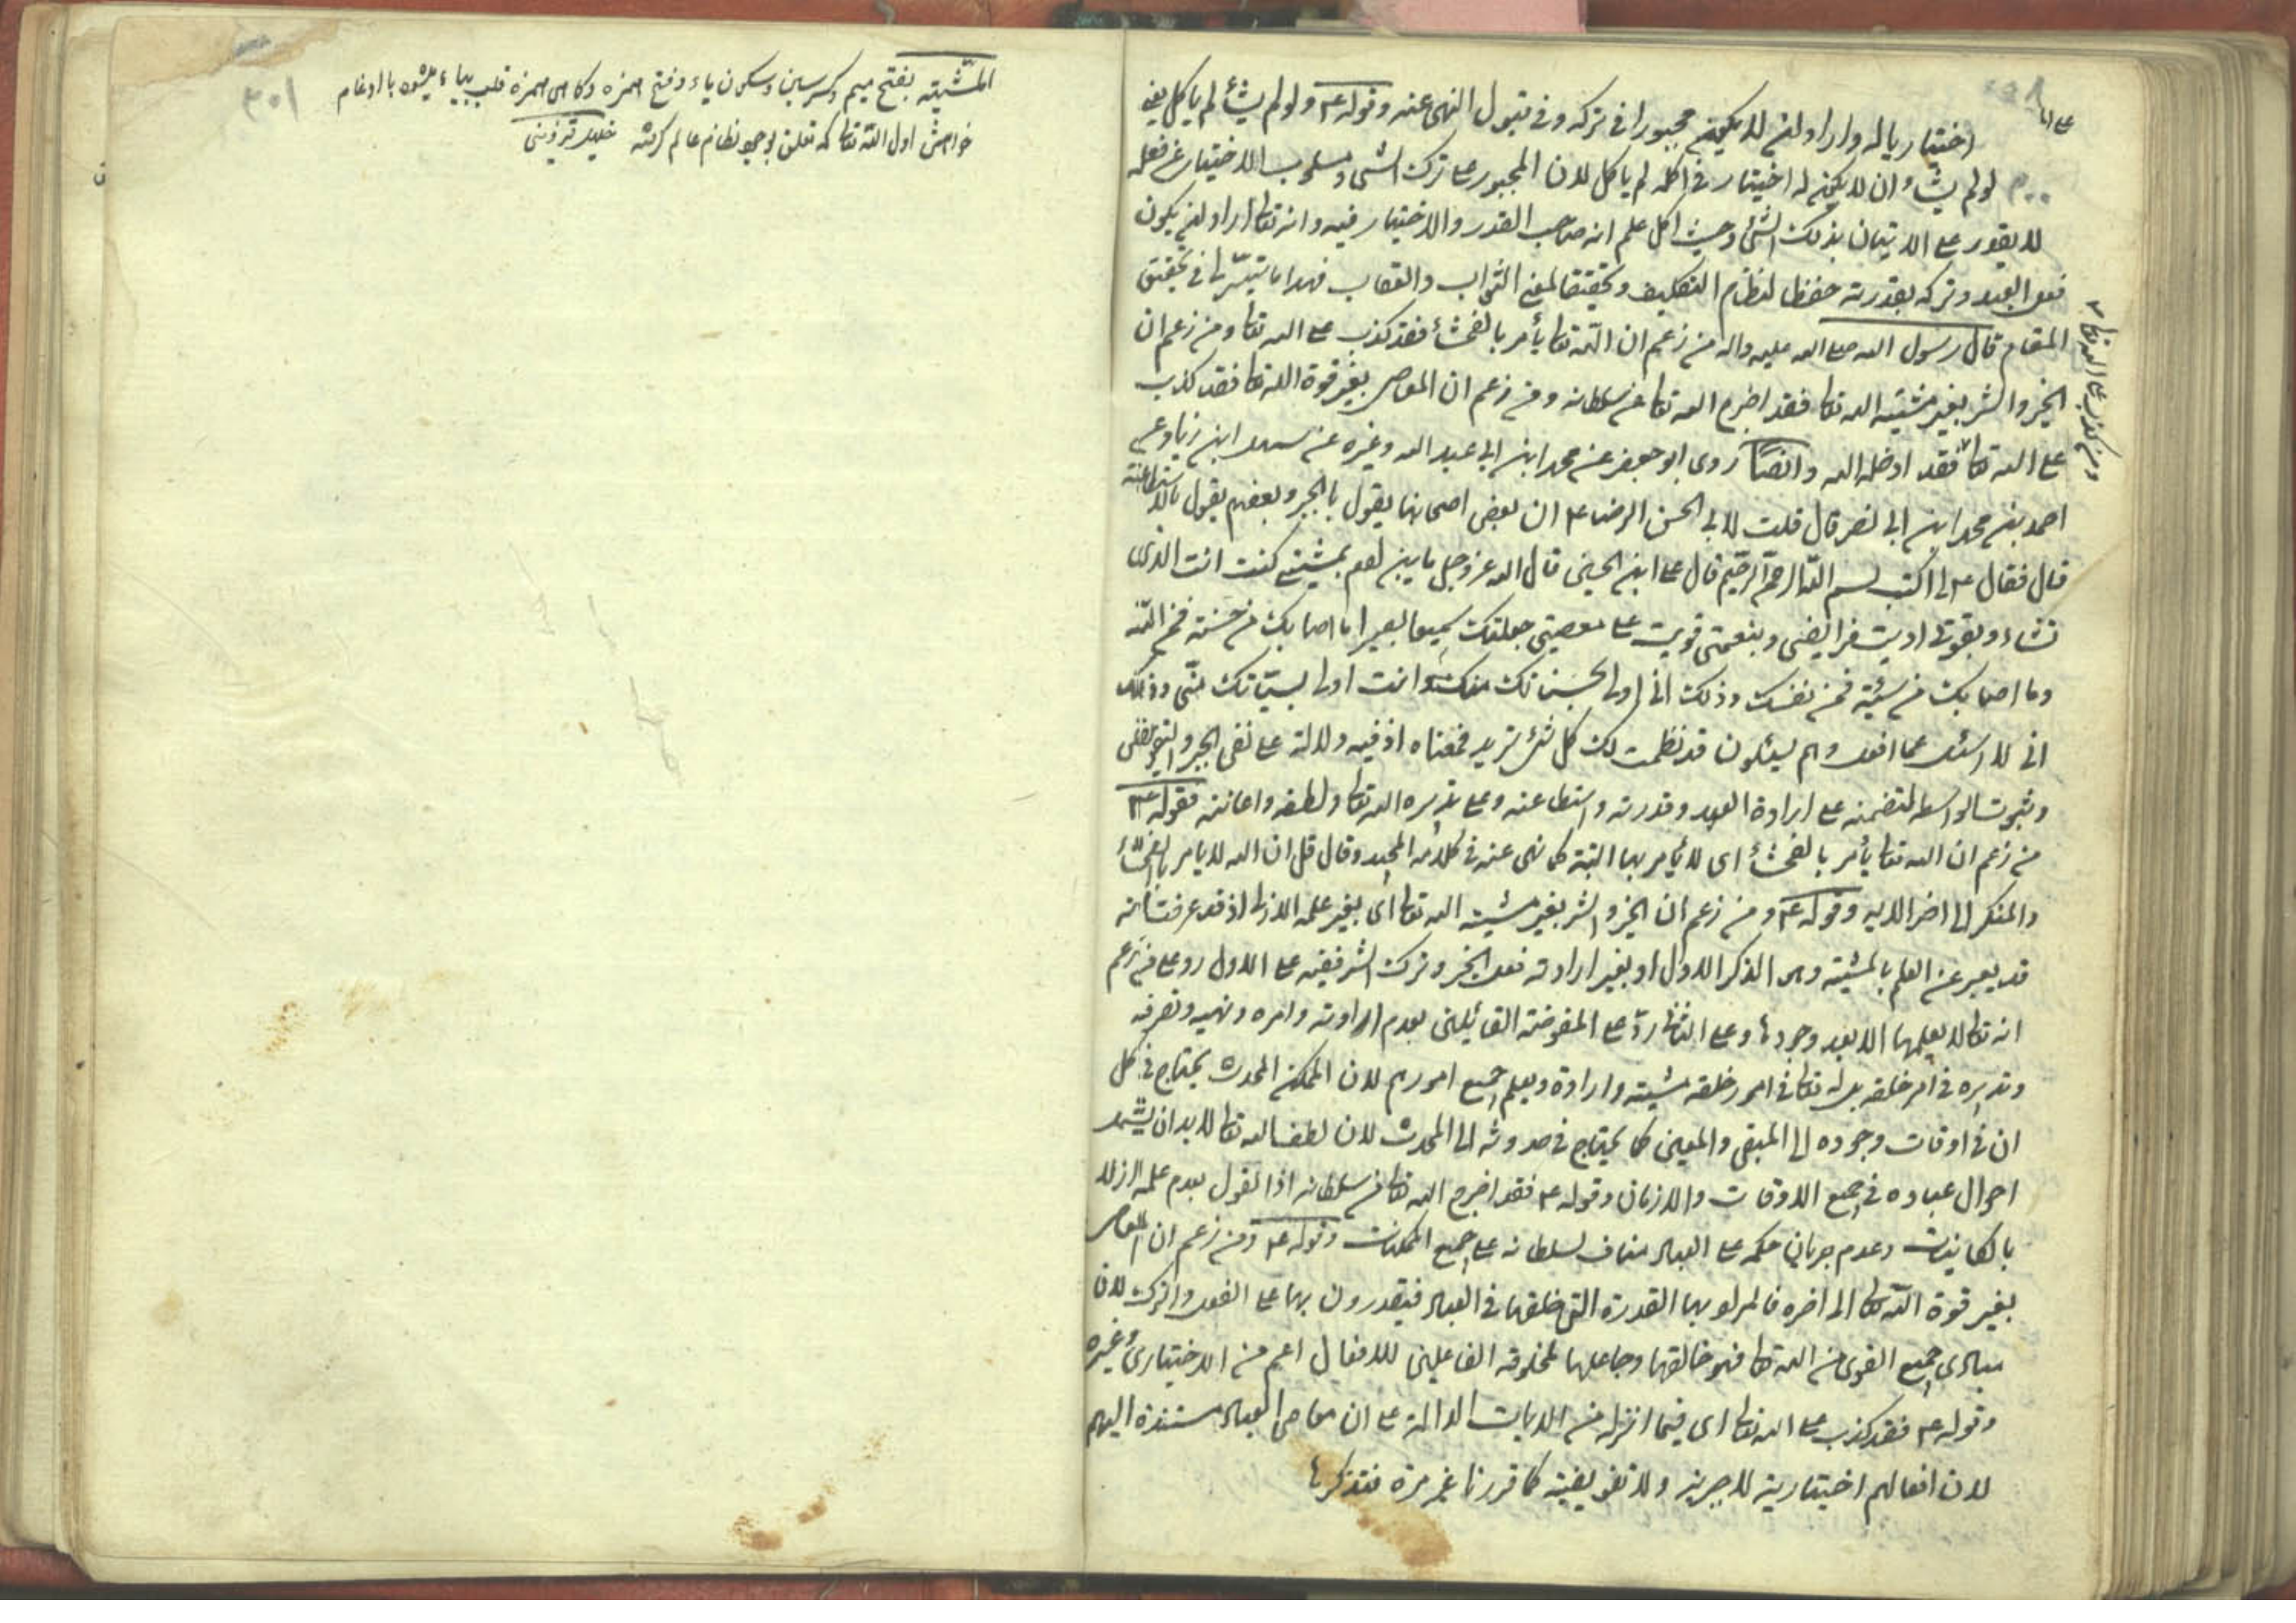 اختيار ياله واراد لئن لا يكون مجبورا في تركه وفي قبول النهي عنه وقوله ع م ولو لم يشأ لم ياكل يعني
لو لم يشاء ان لا يكون له اختيار في اكله لم ياكل لان المجبور على ترك الشي ومسلوب الاختيار عن فعله
لا يقدر على الاتيان بذلك الشئ وحيث اكل علم انه صاحب القدر والاختيار فيه وانه تعا اراد لئن يكون
فعل العبد وتركه بقدرته حفظا لنظام التكليف وتحقيقا لمعنى الثواب والعقاب فهذا ما تيسّر لنا في تحقيق
المقام قال رسول الله صلى الله عليه واله من زعم ان الله تعا يأمر بالفحشأ فقد كذب على الله تعا ومن زعم ان
الخير والشر بغير مشيته الله تعا فقد اخرج الله تعا من سلطانه ومن زعم ان المعاصي بغير قوة الله تعا فقد كذب
على الله تعا فقد ادخله الله وايضًا روى ابو جعفر عن محمد ابن ابي عبد الله وغيره عن سهل ابن زياد عن
ومن كذب على الله تعا
احمد بن محمد ابن ابي نصر قال قلت لابي الحسن الرضا ع م ان بعض اصحابنا يقول بالجبر وبعضهم يقول بالاستطاعته
قال فقال ع م لي اكتب بسم الله الرحمن الرحيم قال على ابن الحسين قال الله عز وجل يا بن ادم بمشيتي كنت انت الذى
تشاء وبقوتي اديت فرايضي وبنعمتي قويت على معصيتي جعلتك سميعا بصيرا ما اصابك من حسنة فمن الله
وما اصابك من سيئة فمن نفسك وذلك اني اولى بحسناتك منك وانت اولى بسيّاتك منّي وذلك
اني لا اسئل عما افعل وهم يسئلون قد نظمت لك كل شئ تريد فمعناه اذ فيه دلالة على نفى الجبر والتفويض
وثبوت الواسطه المتضمنه على ارادة العبد وقدرته واستطاعته وعلى تدبيره الله تعا ولطفه واعانته فقوله ع م
من زعم ان الله تعا يأمر بالفحشأ اى لا يأمر بها البتة كما نهى عنه في كلامه المجيد وقال قل ان الله لا يامر بالفحشأ
والمنكر الى اخر الايه وقوله ع م ومن زعم ان الخير والشر بغير مشيته الله تعا اى بغير علمه الازلى اذ قد عرفت انه
قد يعبر عن العلم بالمشيته وهي الذكر الاول او بغير ارادته فعل الخير وترك الشر ففيه على الاول رد على من زعم
انه تعا لا يعلمها الا بعد وجودها وعلى الثانى ردّ على المفوضة القائلين بعدم ارادته وامره ونهيه وتصرفه
وتدبيره في امر خلقه بل له تعا في امور خلقه مشيته وارادة ويعلم جميع امورهم لان الممكن المحدث يحتاج في كل
ان في اوقات وجوده الى المبقى والمعين كما يحتاج في حدوثه الى المحدث لان لطف الله تعا لا بد ان يشمل
احوال عباده في جميع الاوقات والازمان وقوله ع م فقد اخرج الله تعا من سلطانه اذ القول بعدم علمه ازلا
بالكاينات وعدم جريان حكمه على العباد مناف لسلطانه على جميع الممكنات وقوله ع م ومن زعم ان المعاصي
بغير قوة الله تعا الى اخره فالمراد بها القدرة التي خلقها في العباد فيقدرون بها على الفعل والترك لان
مبادى جميع القوى من الله تعا فهو خالقها وجاعلها لمخلوقه الفاعلين للافعال اعم من الاختيارى وغيره
وقوله ع م فقد كذب على الله تعا اى فيما انزله من الايات الدالة على ان معاصي العباد مستندة اليهم
لان افعالهم اختيارية لا جبرية ولا تفويضية كما قررنا غير مرة فتذكرها
٣٠١
المشّيته بفتح ميم وكسر سين وسكون ياء وفتح همزه وكاهى همزه قلب بياء ميشود با ادغام
خواهش اول الله تعا كه تعلق بوجود نظام عالم كرفته خليل قزوينى